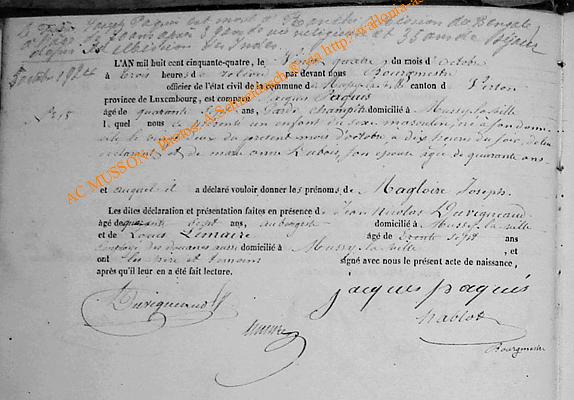 Le Père Joseph Paquet est mort à Ranchi, mission du Bengale
à l'âge de ans après ans de vie religieuse et 35 ans de séjour
dans des Indes
5 octobre 1924
L'AN mil huit cent cinquante-quatre, le vingt quatre du mois d'octobre
à trois heures de relevée par devant nous Bourgmestre
officier de l'état civil de la commune de Mussy-la-ville canton de Virton
province de Luxembourg, est comparu Jacques Paquet
âgé de quarante ans, Garde champêtre domicilié à Mussy-la-ville
lequel nous a présenté un enfant du sexe masculin, né à
le vingt deux du présent mois d'octobre, à dix heures du soir, de lui
déclarant et de marie anne Dubois, son épouse âgée de quarante ans
et auquel il a déclaré vouloir donner les prénoms de Magloire Joseph.
Les dites déclaration et présentation faites en présence de Jean Nicolas Duvigneaud
âgé de quarante sept ans, aubergiste domicilié à Mussy-la-ville
et de Louis Lemaire âgé de trente sept ans
employé des douanes aussi domicilié à Mussy-la-ville, et
ont les père et témoins signé avec nous le présent acte de naissance,
après qu'il leur en a été fait lecture.
Duvigneaud
jacques paquet
Lemaire
nablot
Bourgmestre
AC MUSSON - Photos: A. Schrobiltgen pour http://wallonia-asbl